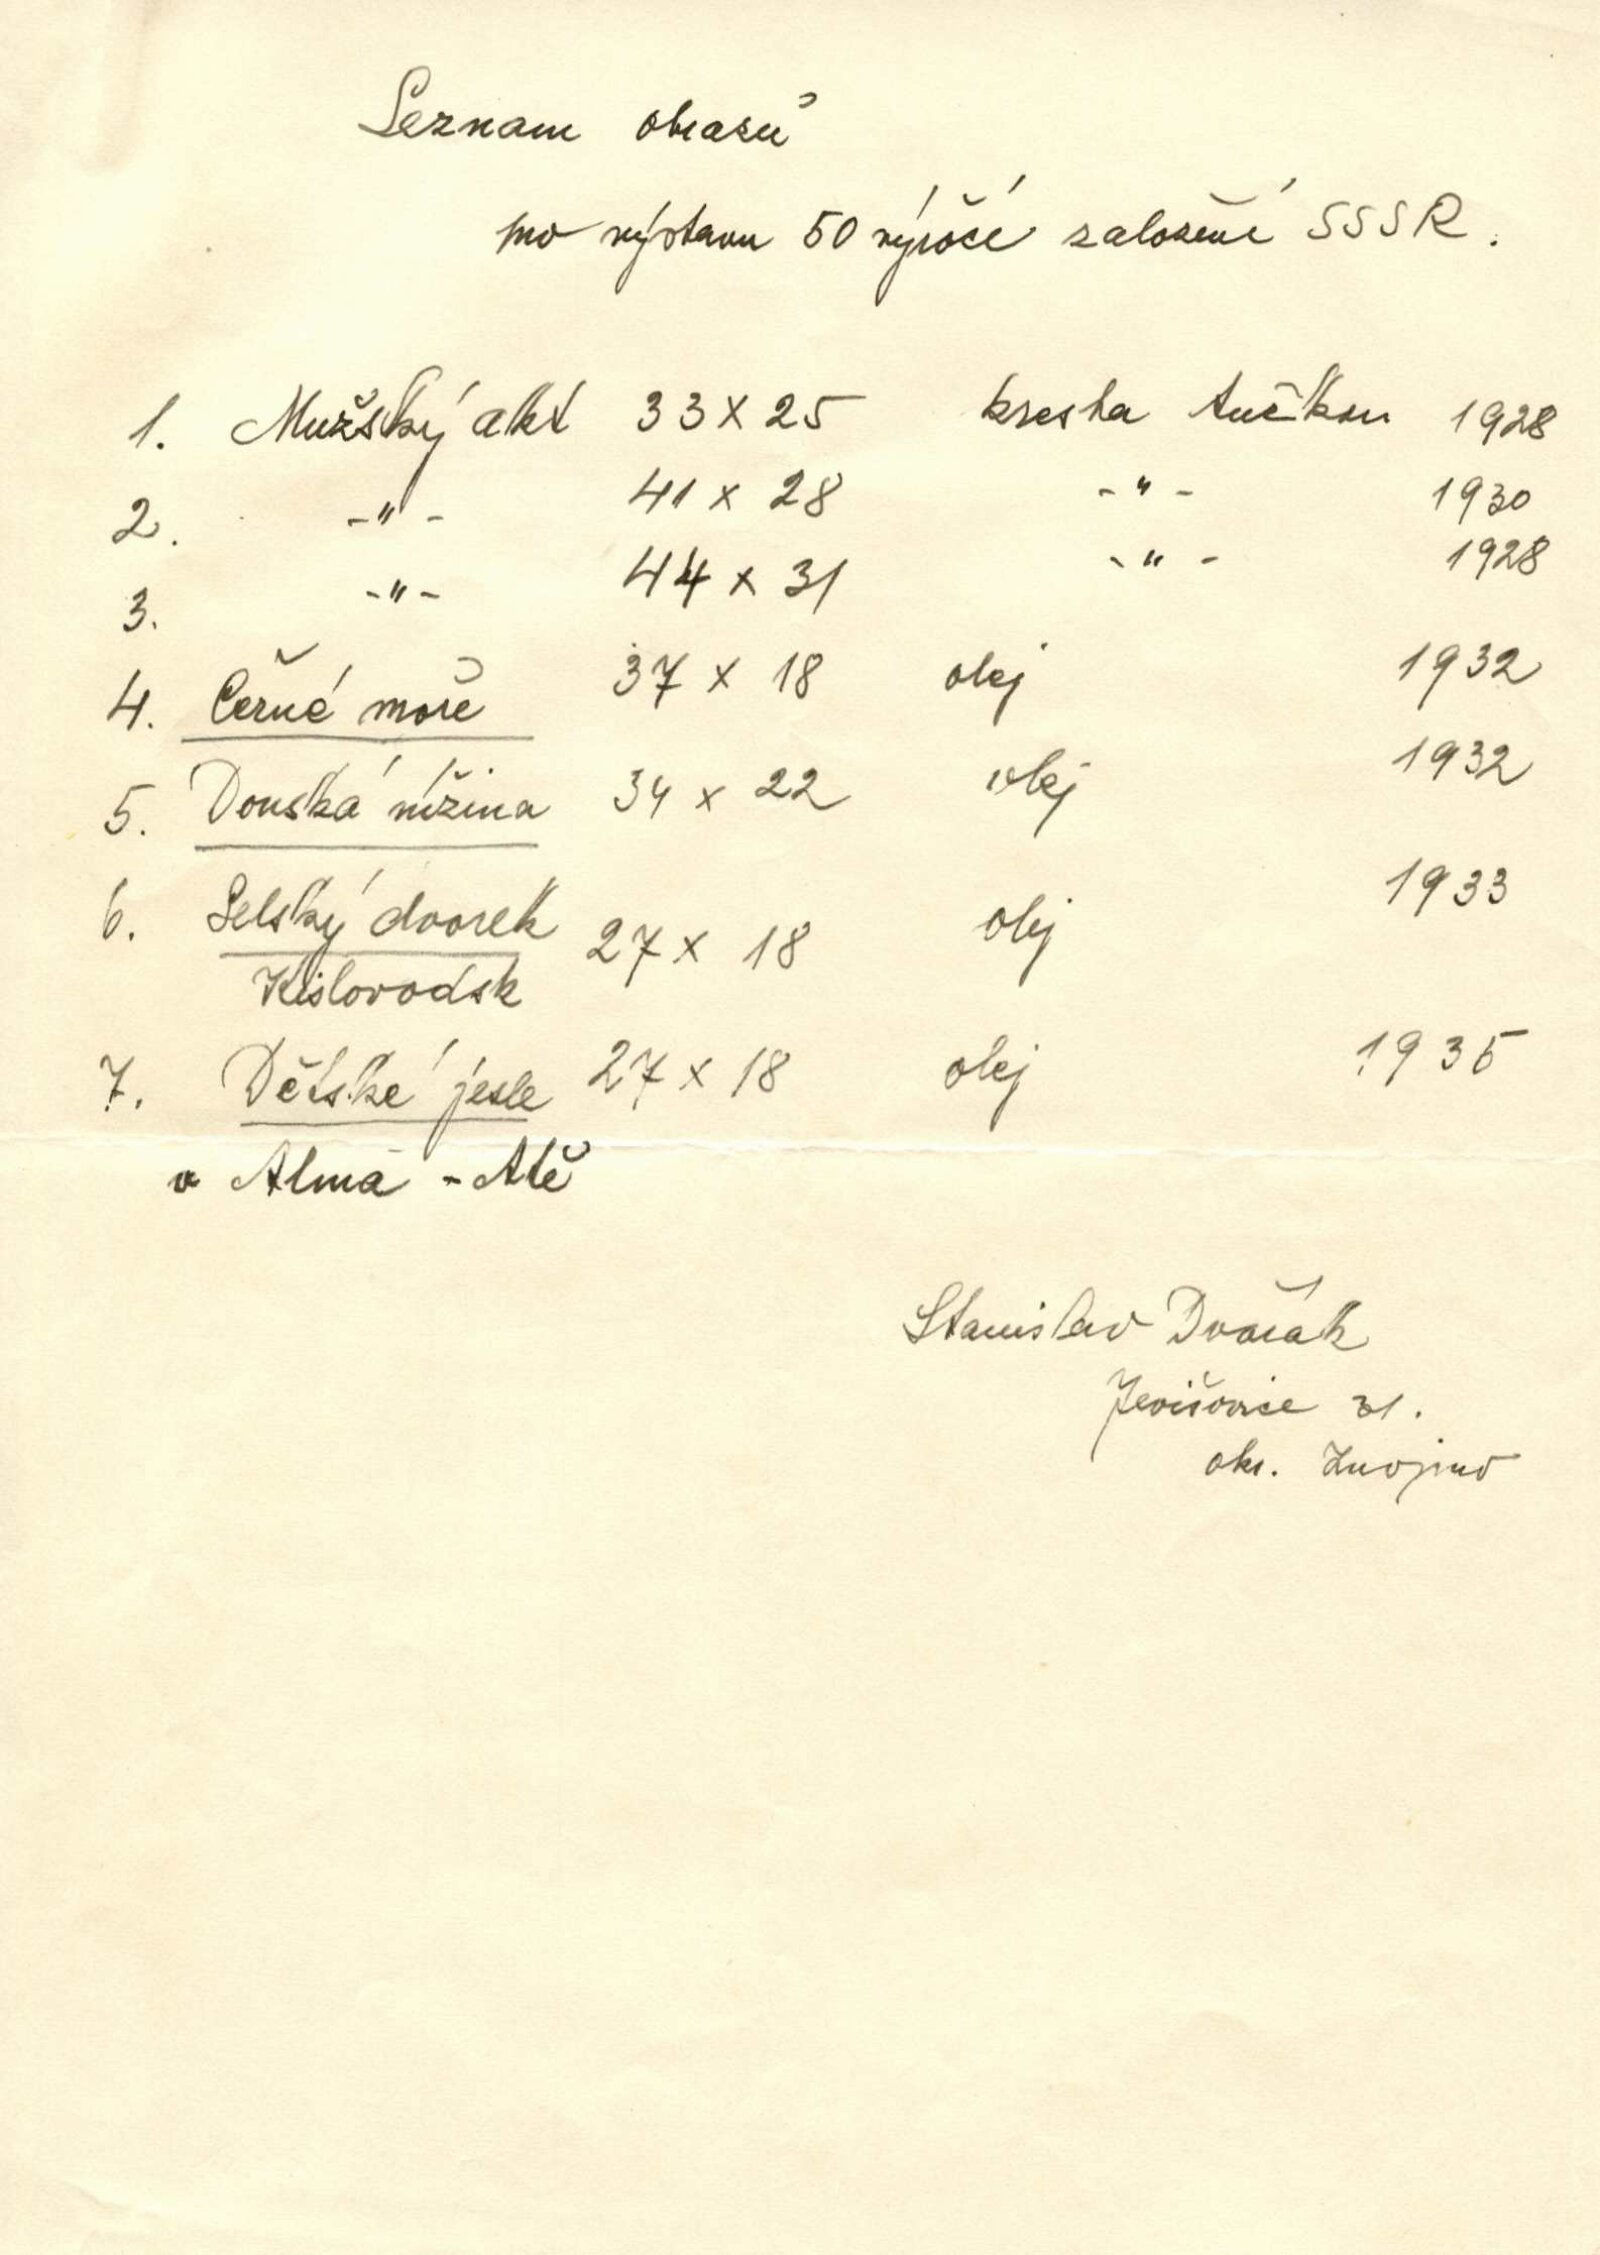 Seznam obrazů
pro výstavu 50 výročí založení SSSR.
1. Mužský akt 33 x 25 kresba tužkou 1928
2. -"- 41 x 28 -"- 1930
3. -"- 44 x 31 -"- 1928
4. Černé moře 37 x 18 olej 1932
5. Donská nížina 34 x 22 olej 1932
6. Selský dvorek 27 x 18 olej 1933
Kislovodsk
7. Dětské jesle 27 x 18 olej 1935
v Alma - Atě
Stanislav Dvořák
Jevišovice 31.
okr. Znojmo